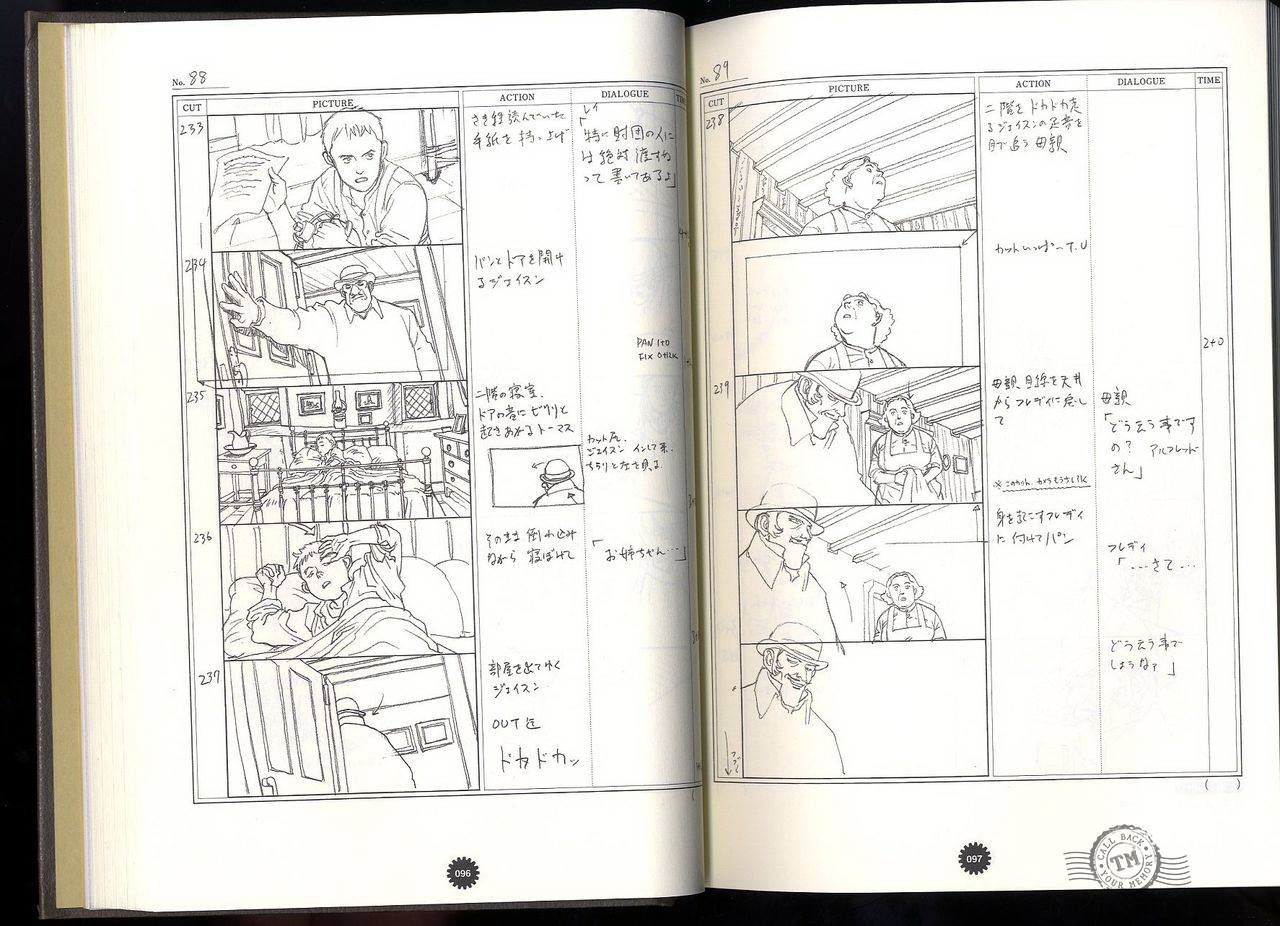 No. 88
CUT
PICTURE
ACTION
DIALOGUE
233
さき程読んでいた
手紙を持ち上げ
レイ
「特に財団の人に
は絶対渡すな
って書いてあるよ」
234
バンとドアを開け
るジェイスン
PAN 1+0
FIX 0+12K
235
二階の寝室、
ドアの音にビクリと
起きあがるトーマス
カット尻、
ジェイスン インして来、
ちらりと左を見る
236
そのまま倒れ込み
ながら 寝ぼけて
「お姉ちゃん…」
237
部屋を出てゆく
ジェイスン
OUT迄
ドカドカッ
096
No. 89
CUT
PICTURE
ACTION
DIALOGUE
TIME
238
二階をドカドカ走
るジェイスンの足音を
目で追う母親
カットいっぱい T.U
2+0
239
母親、目線を天井
からフレディに戻し
て
母親
「どう云う事です
の? アルフレッド
さん」
身を起こすフレディ
に付けてパン
フレディ
「…さて…
どう云う事で
しょうなァ」
( )
097
CALL BACK
TM
YOUR MEMORY